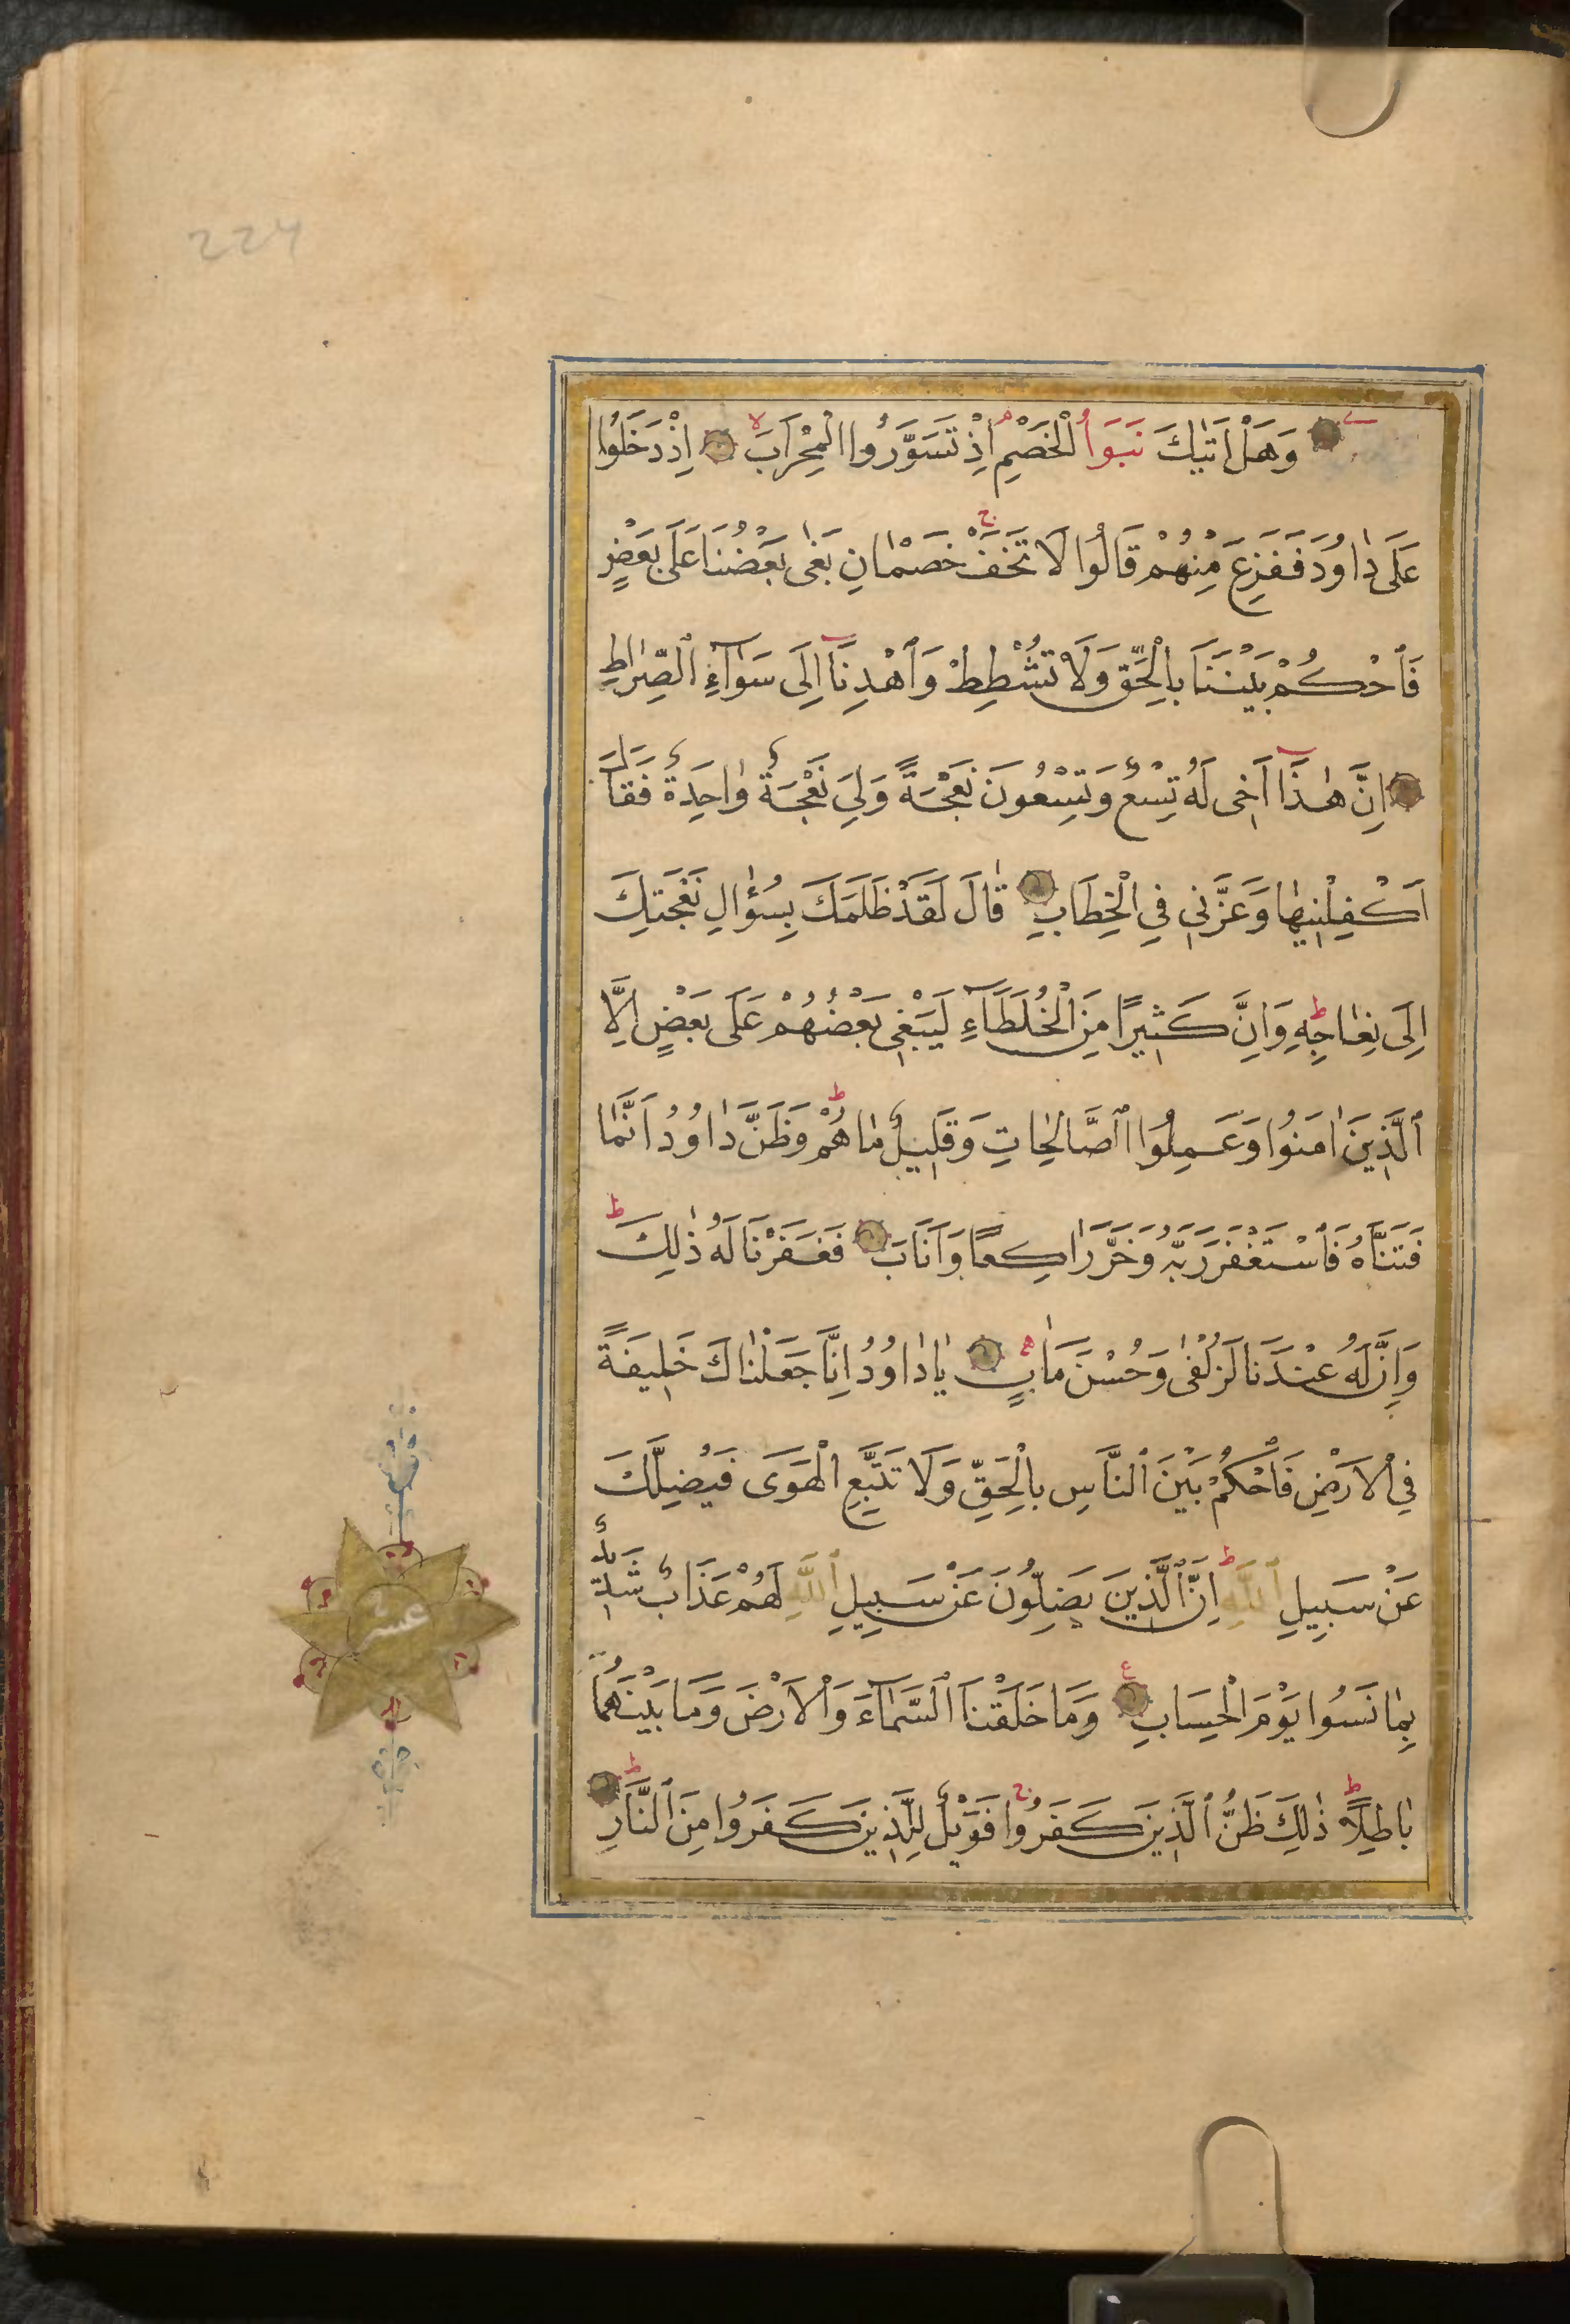 224
وَهَلْ اَتٰيكَ نَبَؤُا الْخَصْمِ اِذْ تَسَوَّرُوا الْمِحْرَابَ اِذْ دَخَلُوا
عَلَى دَاوُدَ فَفَزِعَ مِنْهُمْ قَالُوا لَا تَخَفْ خَصْمَانِ بَغٰى بَعْضُنَا عَلَى بَعْضٍ
فَاحْكُمْ بَيْنَنَا بِالْحَقِّ وَلَا تُشْطِطْ وَاهْدِنَآ اِلَى سَوَآءِ الصِّرَاطِ
اِنَّ هٰذَآ اَخِى لَهُ تِسْعٌ وَتِسْعُونَ نَعْجَةً وَلِيَ نَعْجَةٌ وَاحِدَةٌ فَقَالَ
اَكْفِلْنِيهَا وَعَزَّنِي فِي الْخِطَابِ قَالَ لَقَدْ ظَلَمَكَ بِسُؤَالِ نَعْجَتِكَ
اِلَى نِعَاجِهِ وَاِنَّ كَثِيرًا مِنَ الْخُلَطَآءِ لَيَبْغِي بَعْضُهُمْ عَلَى بَعْضٍ اِلَّا
الَّذِينَ اٰمَنُوا وَعَمِلُوا الصَّالِحَاتِ وَقَلِيلٌ مَا هُمْ وَظَنَّ دَاوُدُ اَنَّمَا
فَتَنَّاهُ فَاسْتَغْفَرَ رَبَّهُ وَخَرَّ رَاكِعًا وَاَنَابَ فَغَفَرْنَا لَهُ ذٰلِكَ
وَاِنَّ لَهُ عِنْدَنَا لَزُلْفٰى وَحُسْنَ مَاٰبٍ يَا دَاوُدُ اِنَّا جَعَلْنَاكَ خَلِيفَةً
فِي الْاَرْضِ فَاحْكُمْ بَيْنَ النَّاسِ بِالْحَقِّ وَلَا تَتَّبِعِ الْهَوَى فَيُضِلَّكَ
عَنْ سَبِيلِ اللّٰهِ اِنَّ الَّذِينَ يَضِلُّونَ عَنْ سَبِيلِ اللّٰهِ لَهُمْ عَذَابٌ شَدِيدٌ
بِمَا نَسُوا يَوْمَ الْحِسَابِ وَمَا خَلَقْنَا السَّمَآءَ وَالْاَرْضَ وَمَا بَيْنَهُمَا
بَاطِلًا ذٰلِكَ ظَنُّ الَّذِينَ كَفَرُوا فَوَيْلٌ لِلَّذِينَ كَفَرُوا مِنَ النَّارِ
عشر